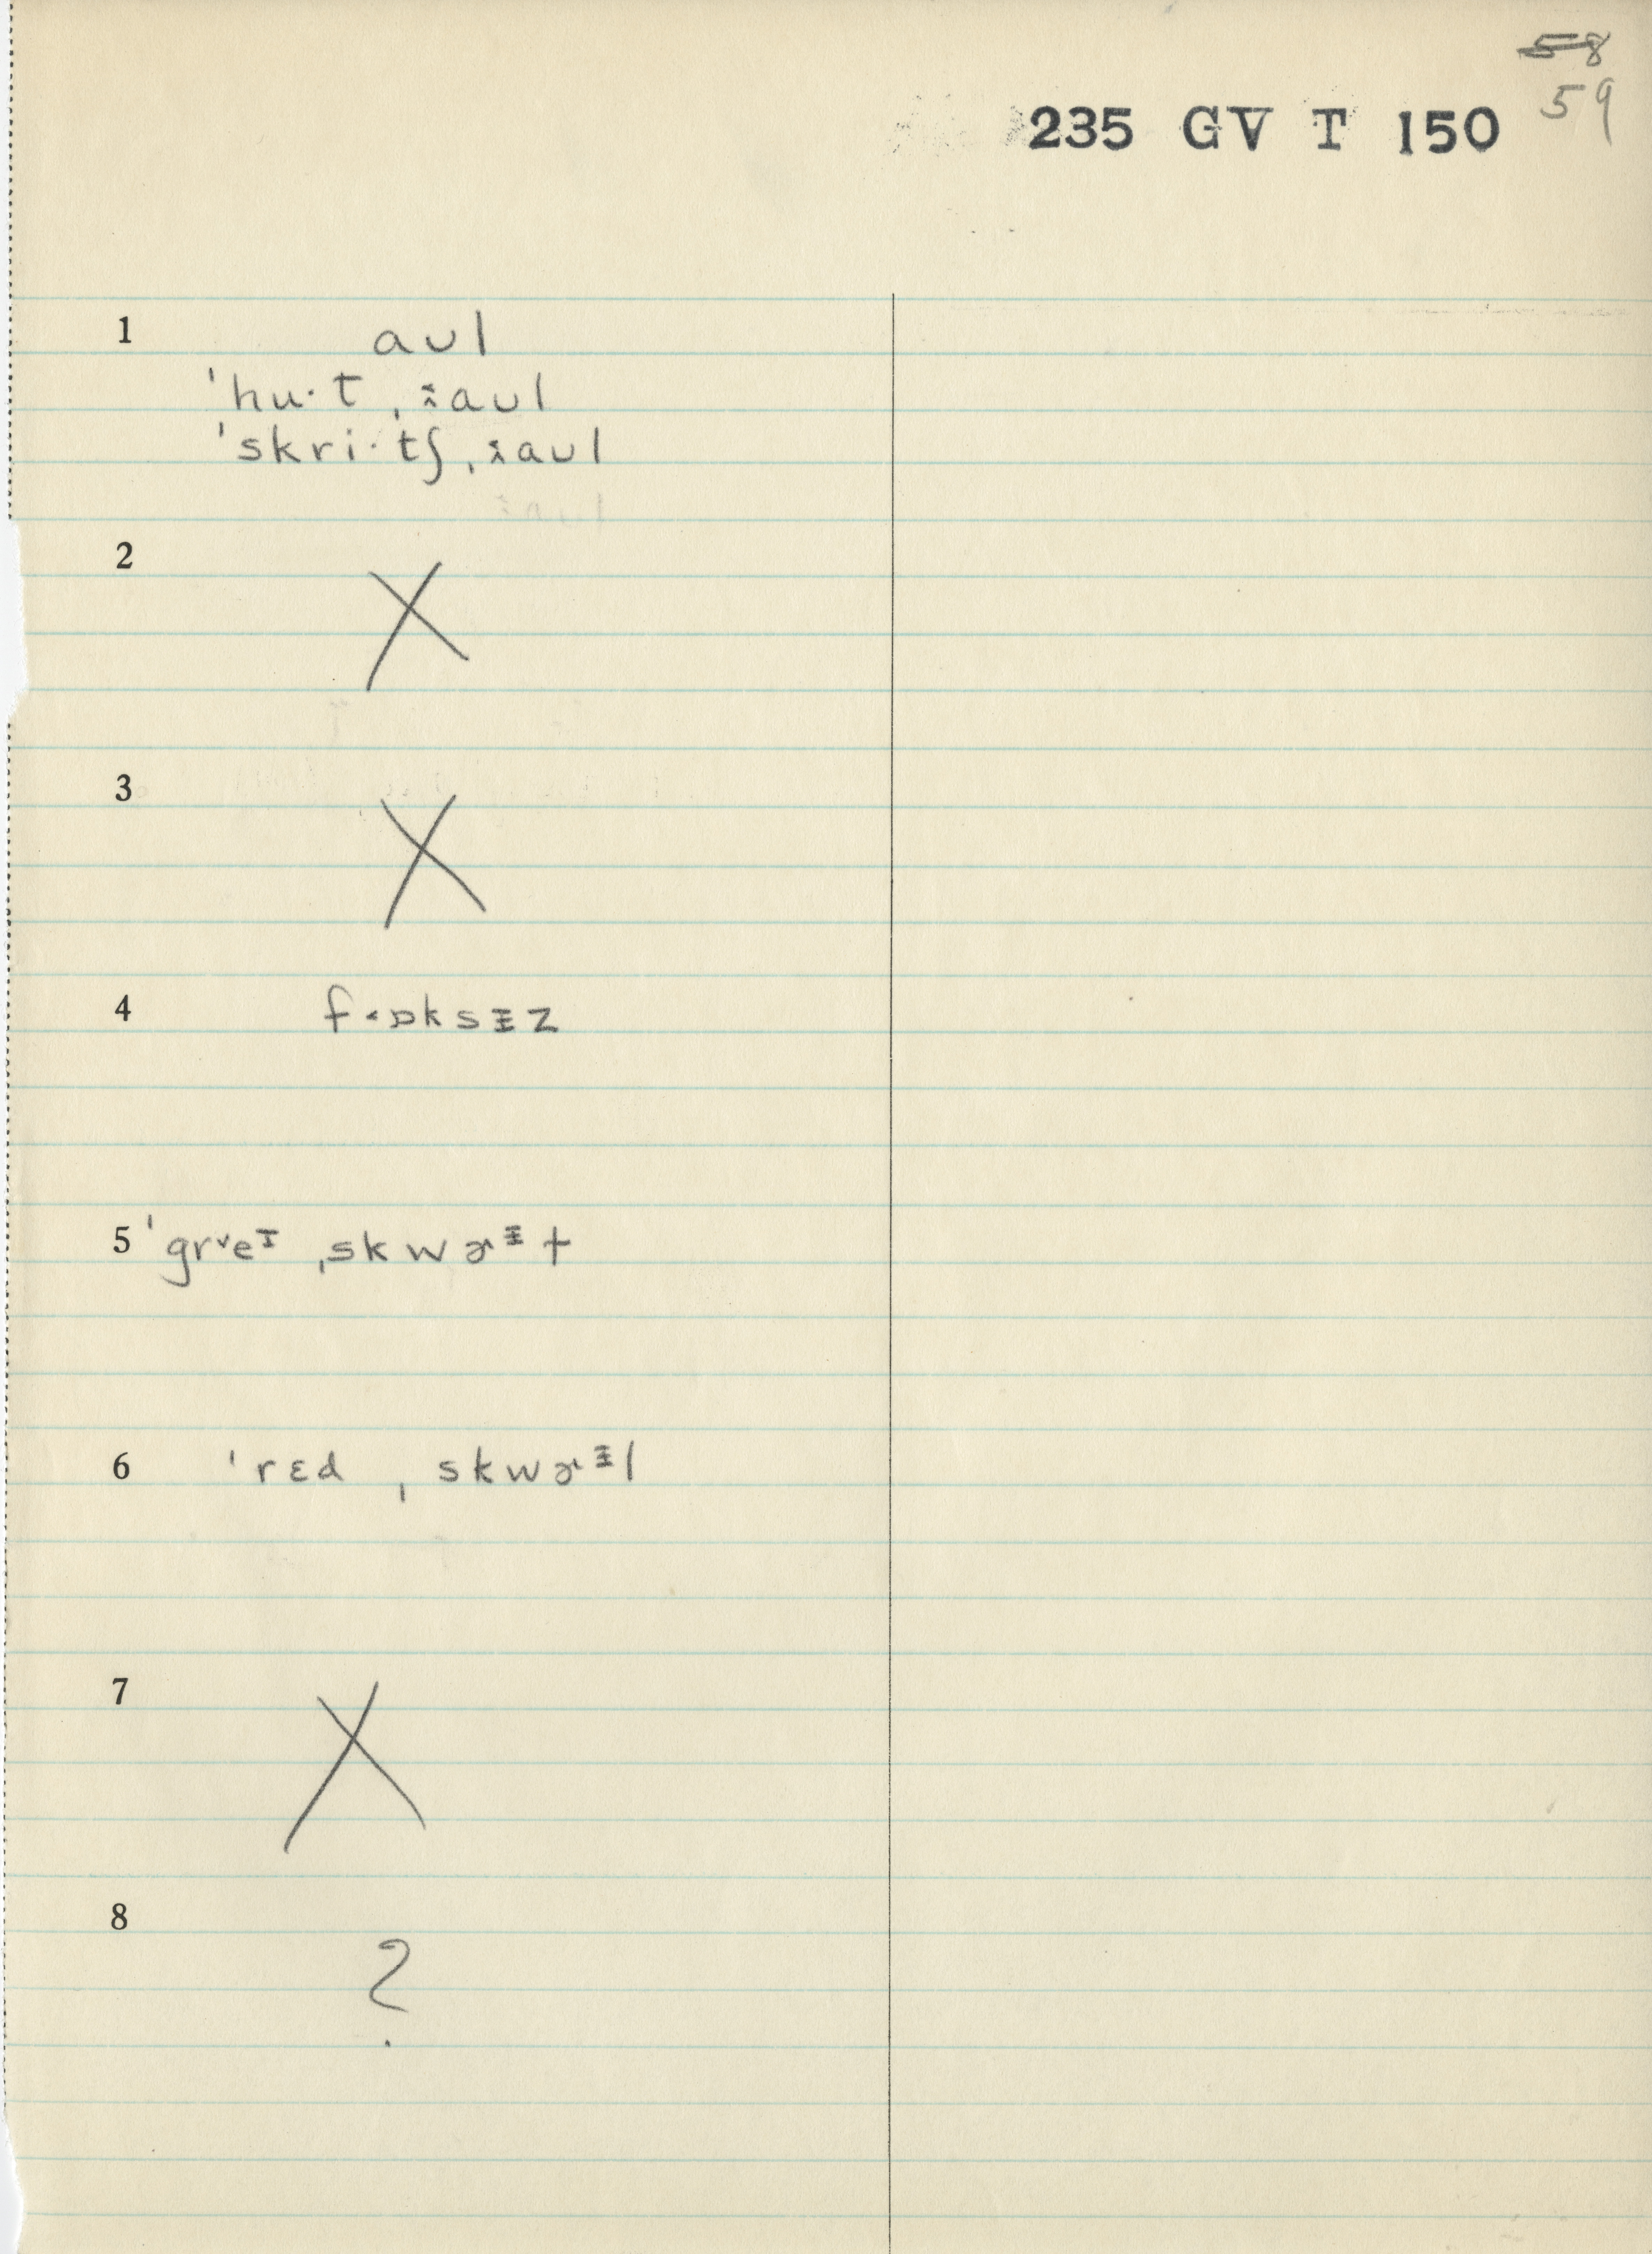 58
59
235 GV T 150
1 aʊl
ˈhu·t ˌɪ̵aʊl
ˈskri·tʃ ˌɪ̵aʊl
2 X
3 X
4 f˂ɒksɪ̵z
5 ˈgr˅eᶦ ˌskwɚᶤɫ
6 ˈrɛd ˌskwɚᶤl
7 X
8 ?